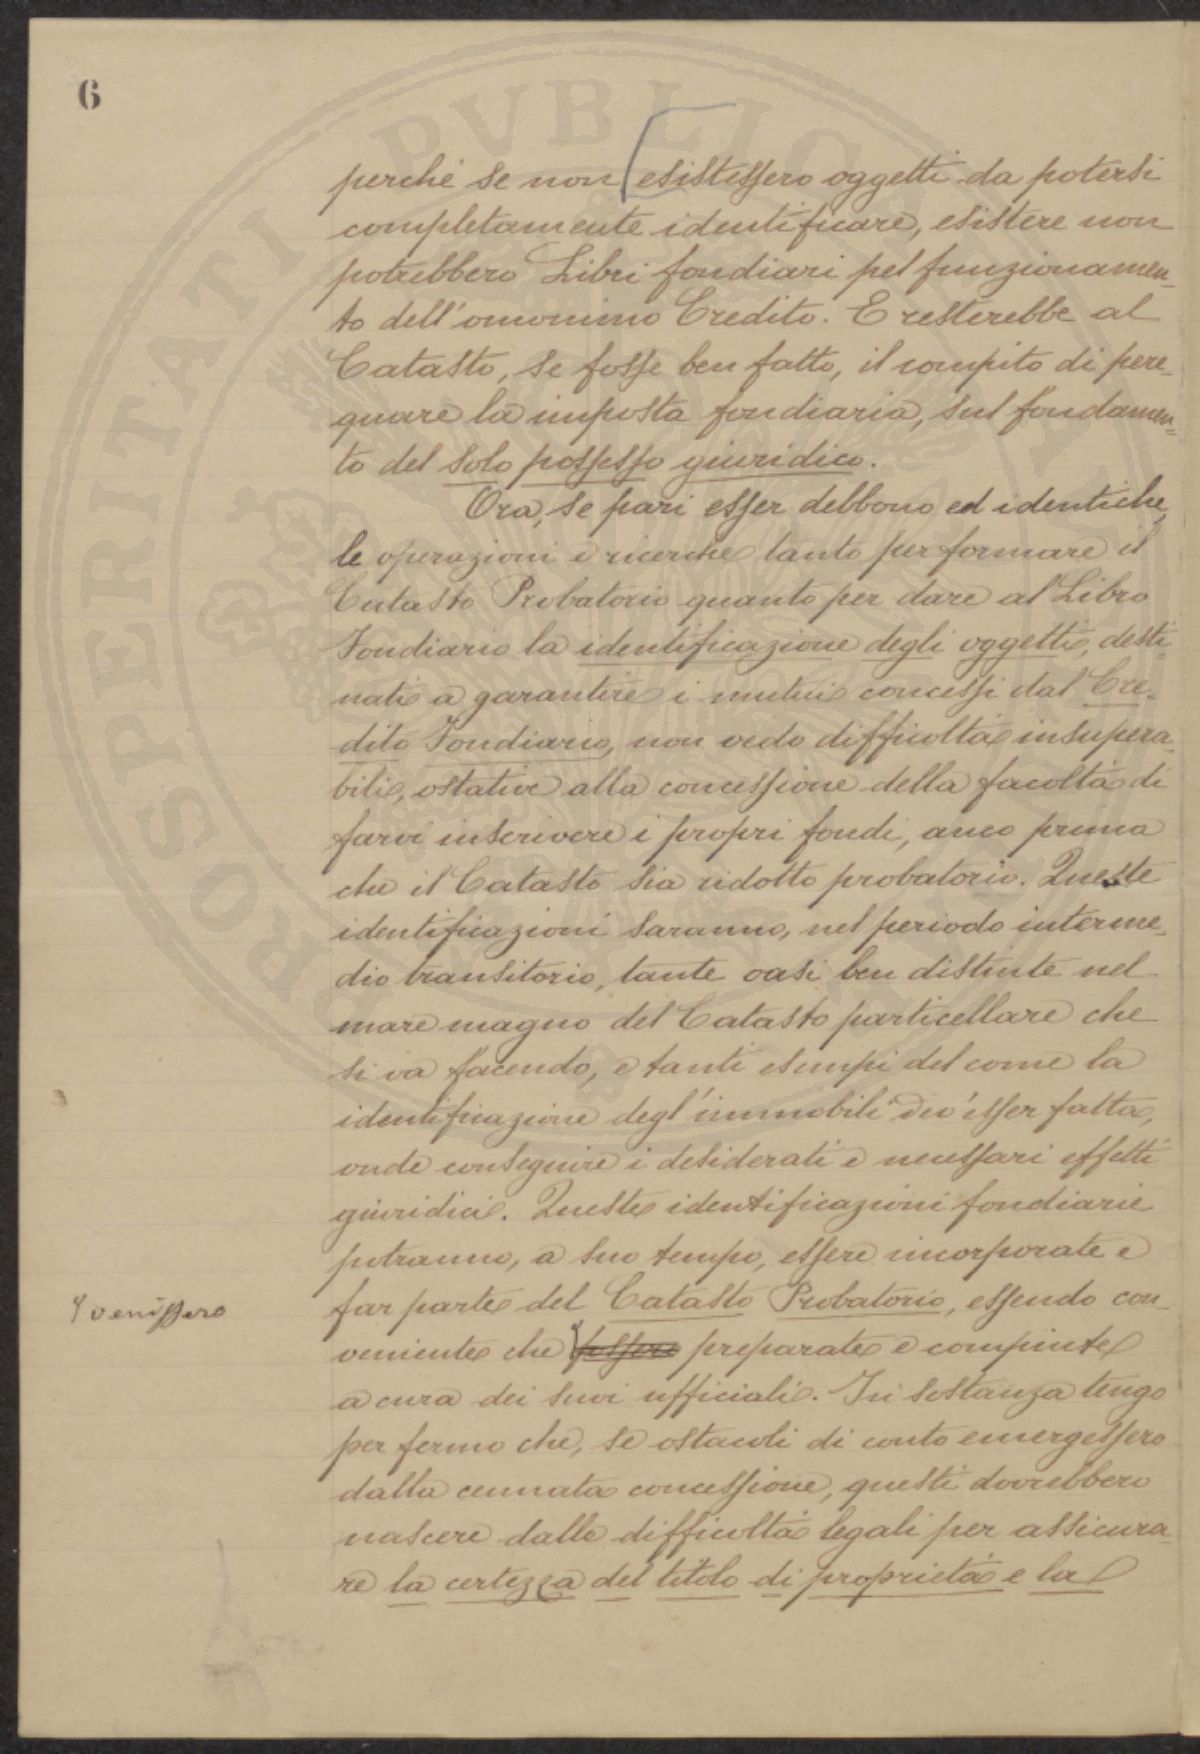 6
perchè se non esistessero oggetti da potersi
completamente identificare, esistere non
potrebbero Libri fondiari pel funzionamen-
to dell'omonimo Credito. E resterebbe al
Catasto, se fosse ben fatto, il compito di pere-
quare la imposta fondiaria, sul fondamen-
to del solo possesso giuridico.
Ora, se pari esser debbono ed identiche,
le operazioni e ricerche tanto per formare il
Catasto Probatorio quanto per dare al Libro
Fondiario la identificazione degli oggetti, desti-
nati a garantire i mutui concessi dal Cre-
dito Fondiario, non vedo difficoltà insupera-
bili, ostative alla concessione della facoltà di
farvi inscrivere i propri fondi, anco prima
che il Catasto sia ridotto probatorio. Queste
identificazioni saranno, nel periodo interme-
dio transitorio, tante oasi ben distinte nel
mare magno del Catasto particellare che
si va facendo, e tanti esempi del come la
identificazione degl'immobili dev'esser fatta,
onde conseguire i desiderati e necessari effetti
giuridici. Queste identificazioni fondiarie
potranno, a suo tempo, essere incorporate e
far parte del Catasto Probatorio, essendo con-
venissero
veniente che fossero preparate e compiute
a cura dei suoi ufficiali. In sostanza tengo
per fermo che, se ostacoli di conto emergessero
dalla cennata concessione, questi dovrebbero
nascere dalle difficoltà legali per assicura-
re la certezza del titolo di proprietà e la
PROSPERITATI PVBLICAE